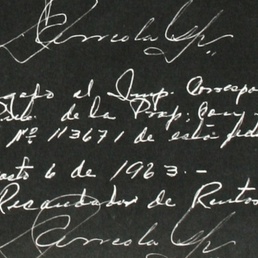 Arreola Jr.
gado al Imp. Correspo
de la Prop; Con
Nº 113671 de esta fed
osto 6 de 1963.-
Recaudador de Rentas
Arreola Jr